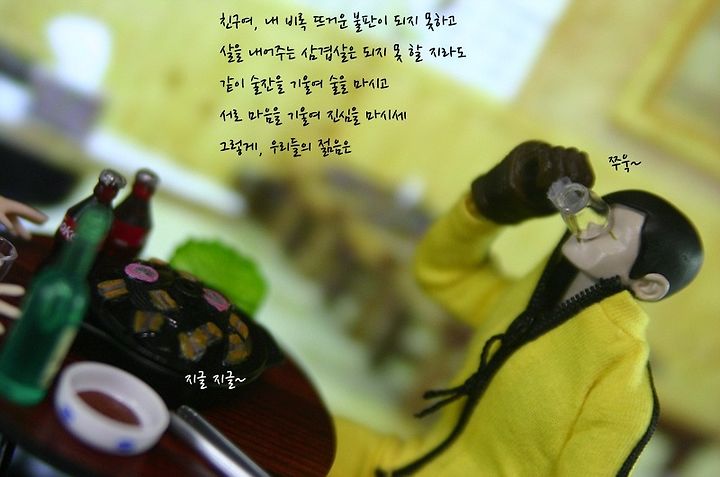 친구여, 내 비록 뜨거운 불판이 되지 못하고
살을 내어주는 삼겹살은 되지 못 할 지라도
같이 술잔을 기울여 술을 마시고
서로 마음을 기울여 진심을 마시세
그렇게, 우리들의 젊음은
쭈욱~
지글 지글~